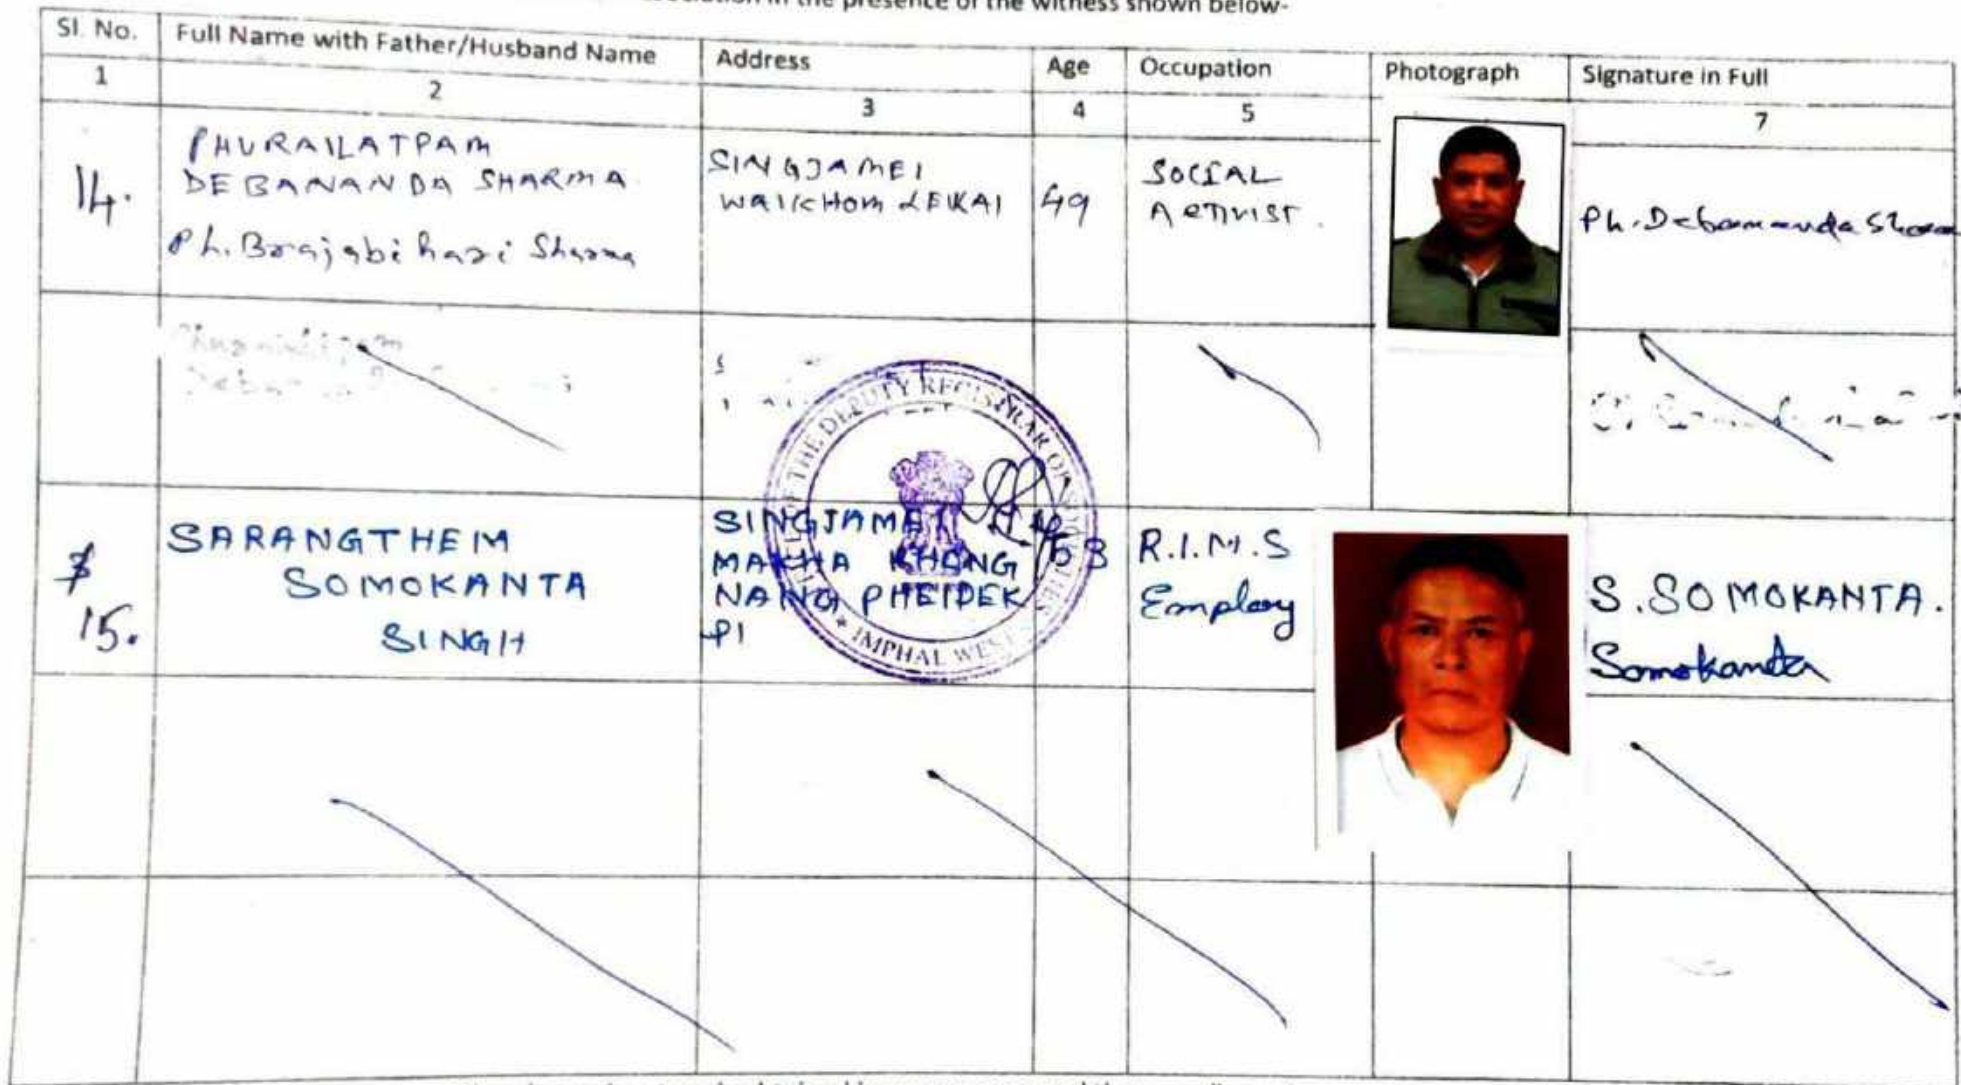 in the presence of the witness shown below-
Sl. No. Full Name with Father/Husband Name Address Age Occupation Photograph Signature in Full
1 2 3 4 5 7
14.
PHURAILATPAM
DEBANANDA SHARMA
Ph. Brajabihari Sharma
SINGJAMEI
WAIKHOM LEIKAI
49
SOCIAL
ACTIVIST.
Ph. Debananda Sharma
THE DEPUTY REGISTRAR OF SOCIETIES
IMPHAL WEST
15.
SARANGTHEM
SOMOKANTA
SINGH
SINGJAMEI
MAKHA KHONG
NANG PHEIDEK
PI
53
R.I.M.S
Employ
S. SOMOKANTA.
Somokanta